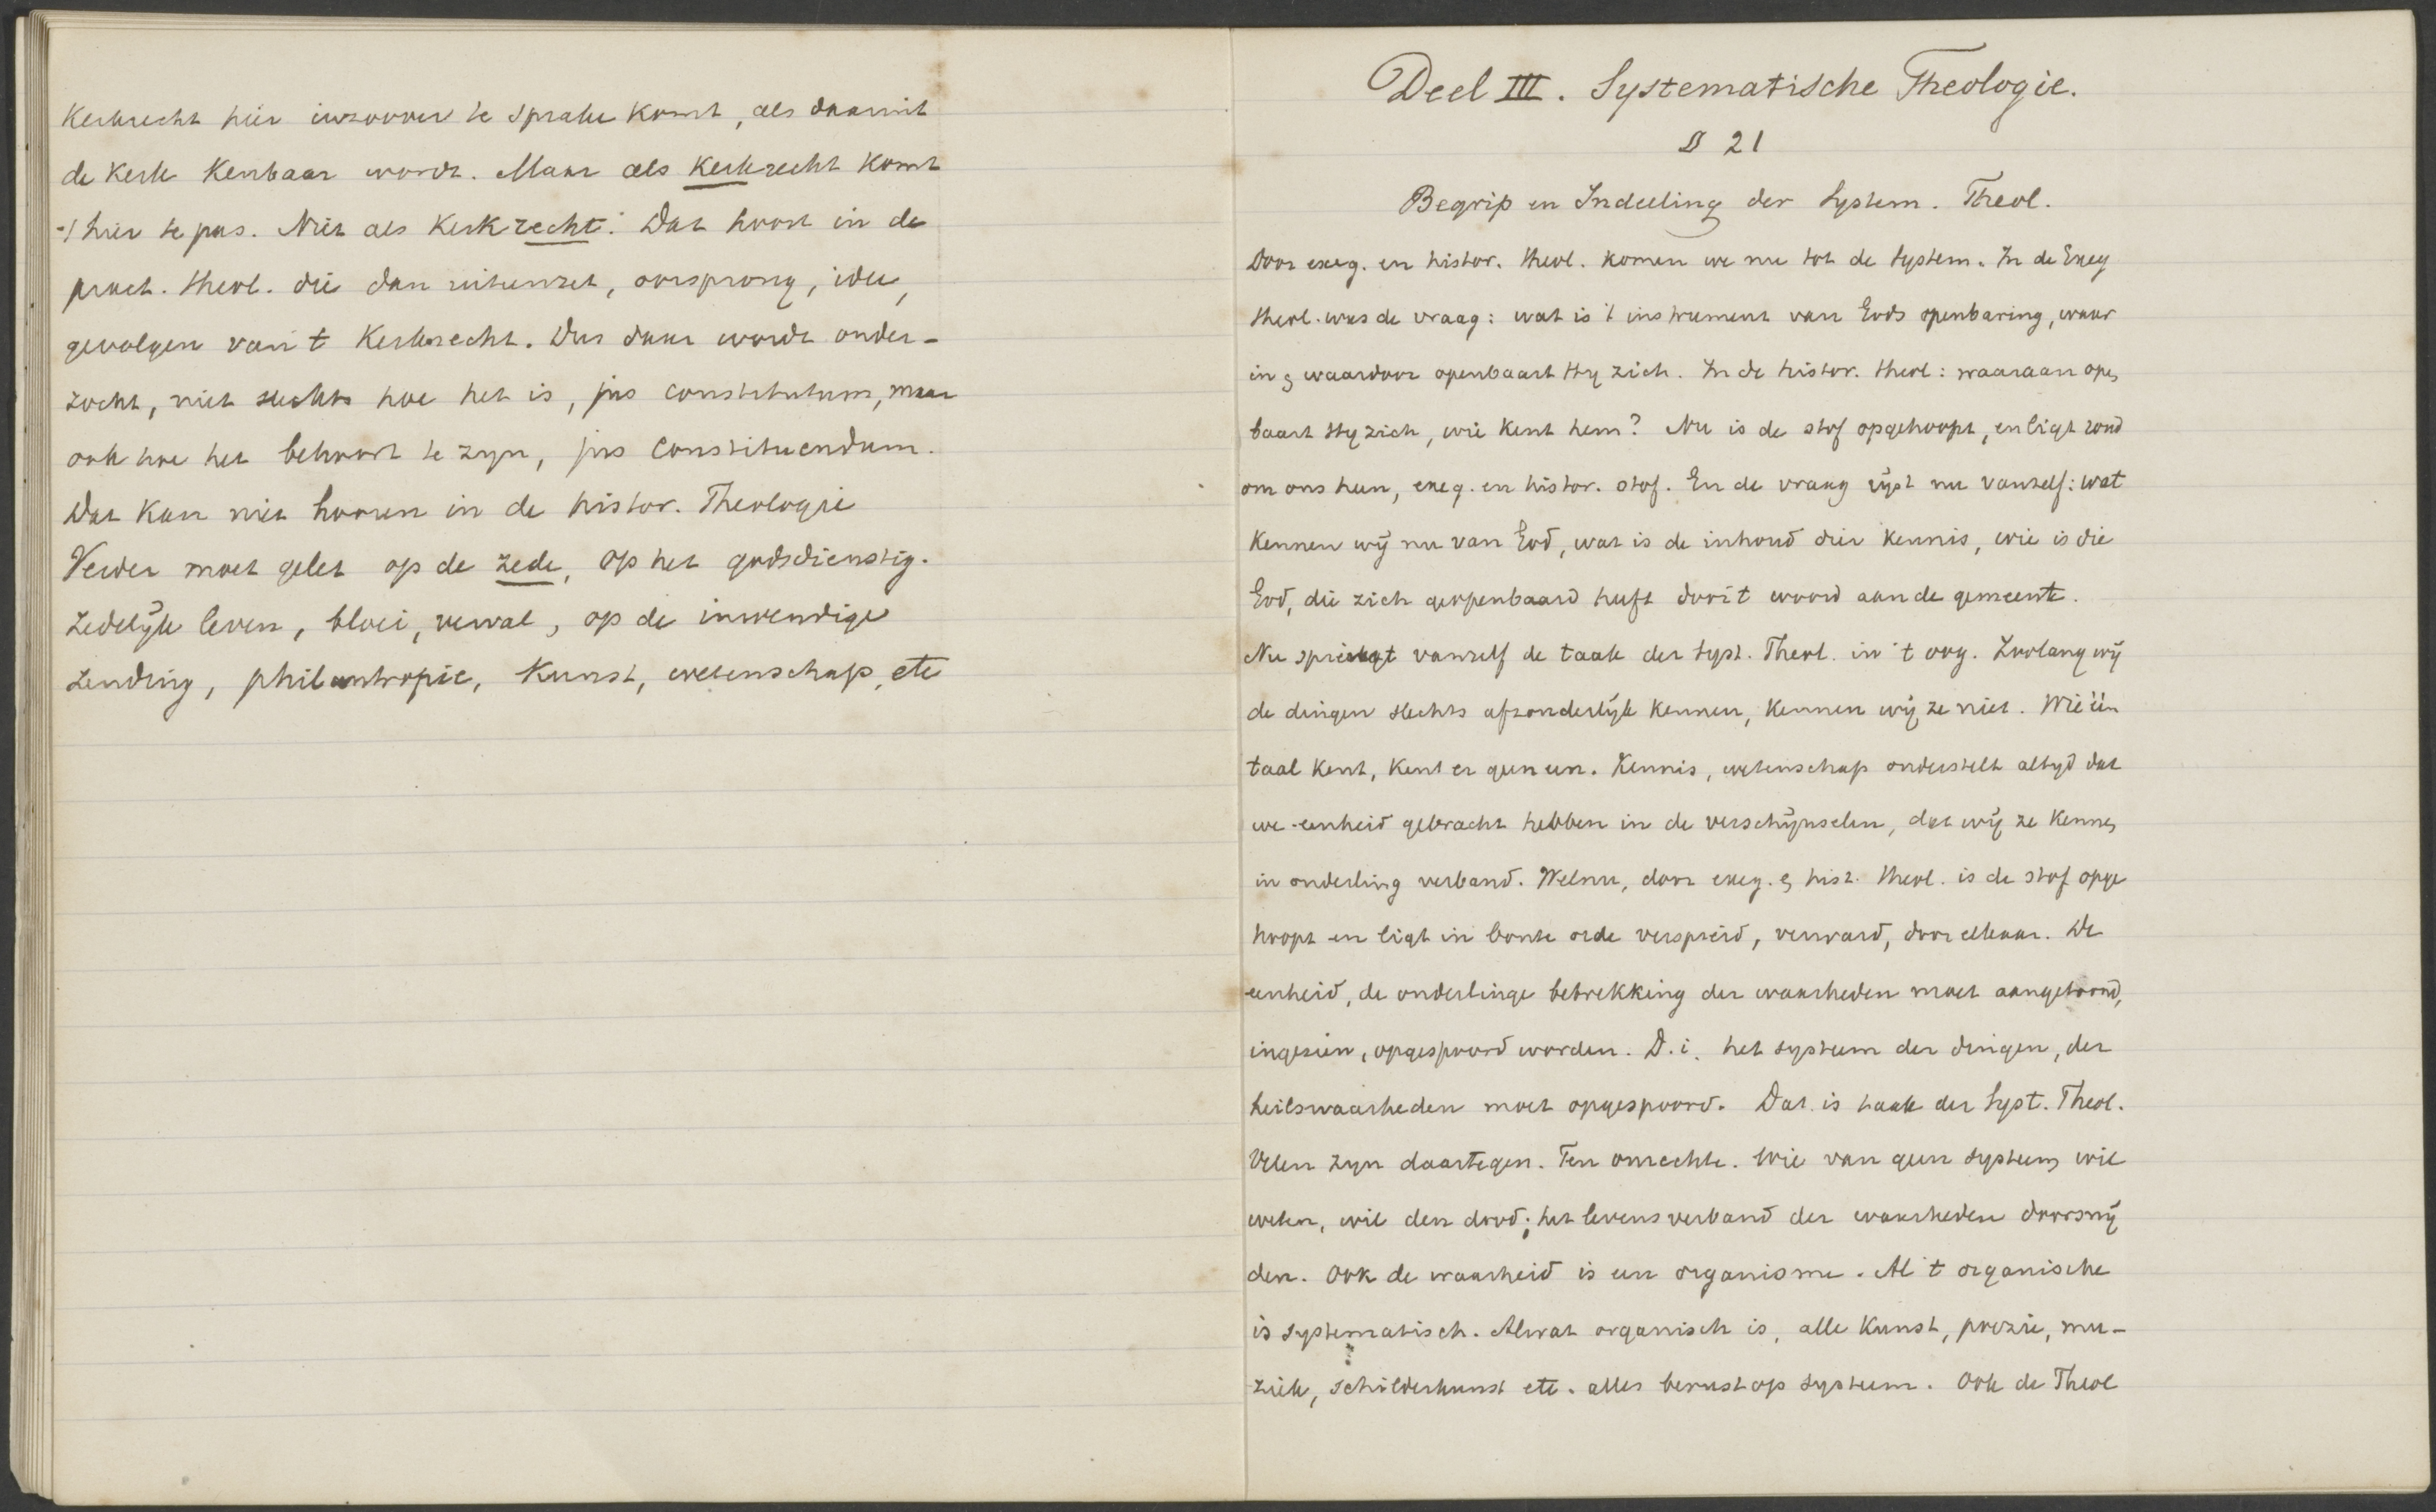 Kerkrecht hier inzoover te sprake komt, als daaruit
de Kerk Kenbaar wordt. Maar als Kerkrecht komt
't hier te pas. Niet als Kerkrecht. Dat hoort in de
pract. theol. die dan uiteenzet, oorsprong, idee,
gevolgen van 't Kerkrecht. Dus daar wordt onder-
zocht, niet slechts hoe het is, jus constitutum, maar
ook hoe het behoort te zyn, jus constituendum.
Dat kan niet hooren in de histor. Theologie
Verder moet gelet op de zede, op het godsdienstig.
Zedelijk leven, bloei, verval, op de inwendige
zending, philantropie, Kunst, wetenschap, etc
Deel III. Systematische Theologie.
§ 21
Begrip en Indeeling der System. Theol.
Door exeg. en histor. theol. komen we nu tot de system. In de Exeg
theol. was de vraag: wat is 't instrument van Gods openbaring, waar
in & waardoor openbaart Hy zich. In de histor. theol: waaraan open
baart Hy zich, wie kent hem? Nu is de stof opgehoopt, en ligt rond
om ons heen, exeg. en histor. stof. En de vraag rijst nu vanzelf: wat
kennen wij nu van God, wat is de inhoud dier kennis, wie is die
God, die zich geopenbaard heeft door 't woord aan de gemeente.
Nu springt vanzelf de taak der syst. Theol. in 't oog. Zoolang wij
de dingen slechts afzonderlijk kennen, kennen wij ze niet. Wie één
taal kent, kent er geen een. Kennis, wetenschap onderstelt altyd dat
we eenheid gebracht hebben in de verschijnselen, dat wij ze kennen
in onderling verband. Welnu, door exeg. & hist. theol. is de stof opge
hoopt en ligt in bonte orde verspreid, verward, door elkaar. De
eenheid, de onderlinge betrekking der waarheden moet aangetoond,
ingezien, opgespoord worden. D. i. het systeem der dingen, der
heilswaarheden moet opgespoord. Dat is taak der Syst. Theol.
Velen zyn daartegen. Ten onrechte. Wie van geen systeem wil
weten, wil den dood; het levensverband der waarheden doorsnij
den. Ook de waarheid is een organisme. Al 't organische
is systematisch. Alwat organisch is, alle Kunst, poezie, mu-
ziek, schilderkunst etc. alles berust op systeem. Ook de Theol